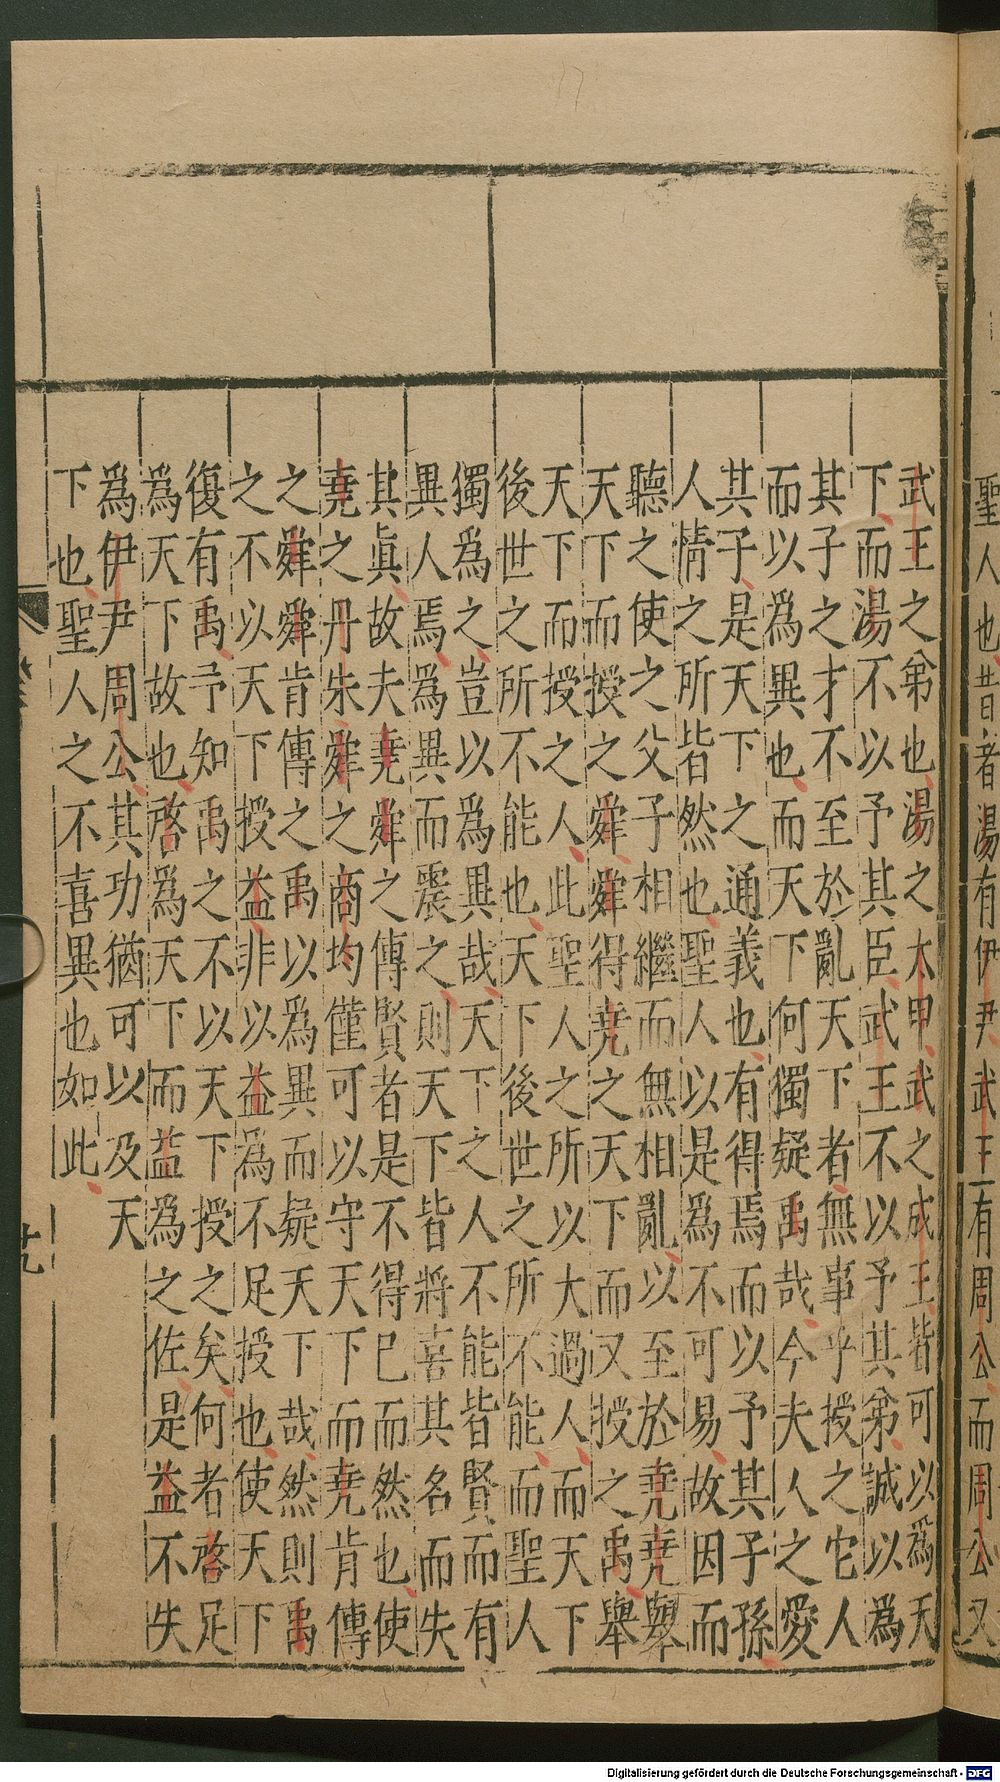 聖人也昔者湯有伊尹武王有周公而周公又
武王之弟也湯之太甲武之成王皆可以爲天
下而湯不以予其臣武王不以予其弟誠以爲
其子之才不至於亂天下者無事乎授之它人
而以爲異也而天下何獨疑禹哉今夫人之愛
其子是天下之通義也有得焉而以予其子孫
人情之所皆然也聖人以是爲不可易故因而
聽之使之父子相繼而無相亂以至於堯堯舉
天下而授之舜舜得堯之天下而又授之禹舉
天下而授之人此聖人之所以大過人而天下
後世之所不能也天下後世之所不能而聖人
獨爲之豈以爲異哉天下之人不能皆賢而有
異人焉爲異而震之則天下皆將喜其名而失
其眞故夫堯舜之傳賢者是不得已而然也使
堯之丹朱舜之商均僅可以守天下而堯肯傳
之舜舜肯傳之禹以爲異而疑天下哉然則禹
之不以天下授益非以益爲不足授也使天下
復有禹予知禹之不以天下授之矣何者啓足
爲天下故也啓爲天下而益爲之佐是益不失
爲伊尹周公其功猶可以及天
下也聖人之不喜異也如此
Digitalisierung gefördert durch die Deutsche Forschungsgemeinschaft - DFG